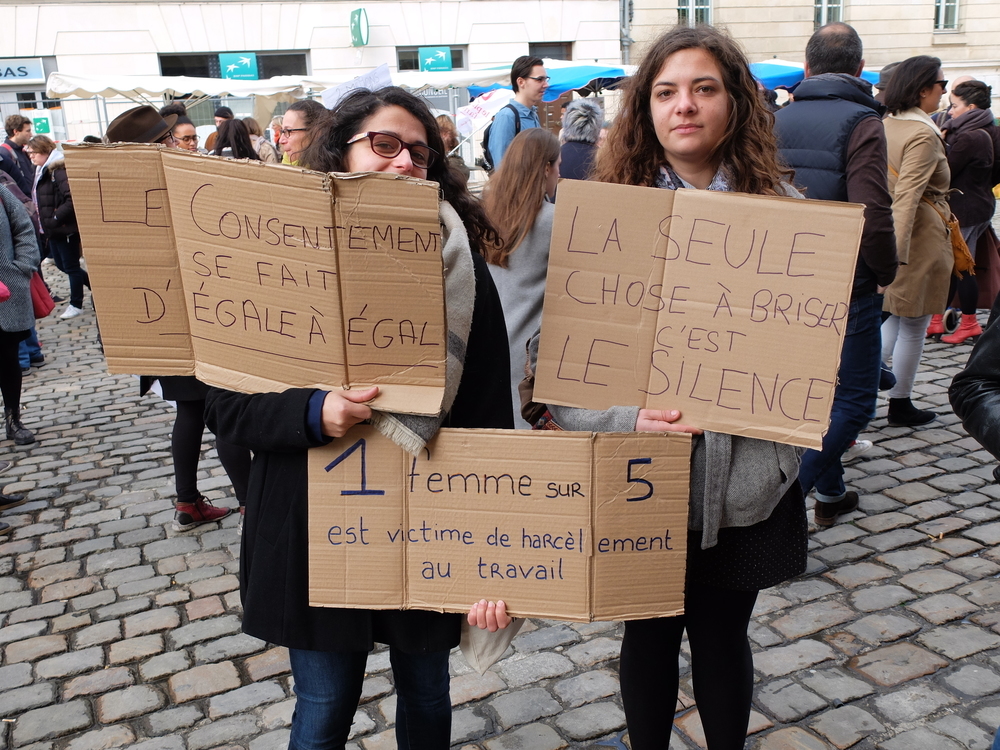 LE CONSENTEMENT
SE FAIT
D'ÉGALE À ÉGAL
LA SEULE
CHOSE À BRISER
C'EST
LE SILENCE
1 femme SUR 5
est victime de harcèlement
au travail
BAS